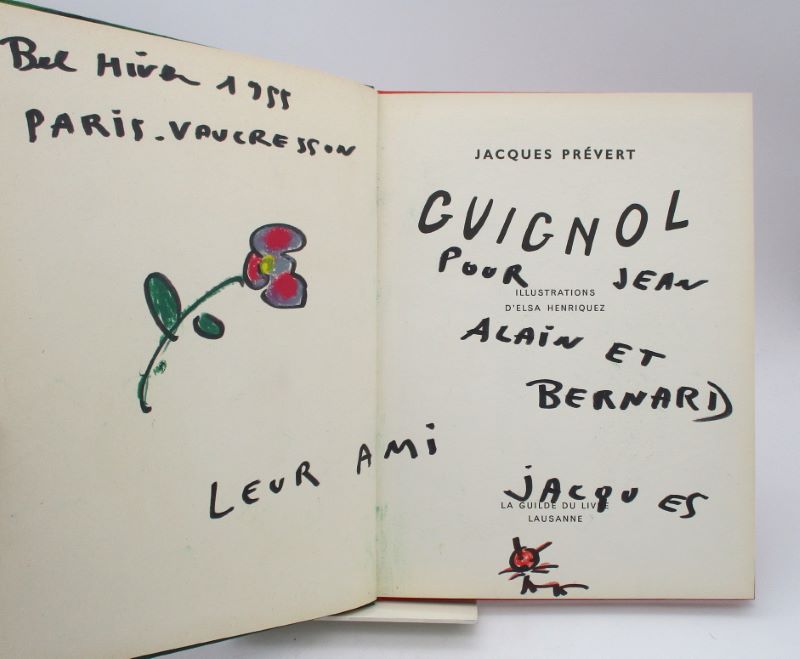 Bel Hiver 1955
PARIS-VAUCRESSON
LEUR AMI
JACQUES PRÉVERT
GUIGNOL
POUR JEAN
ILLUSTRATIONS
D'ELSA HENRIQUEZ
ALAIN ET
BERNARD
JACQUES
LA GUILDE DU LIVRE
LAUSANNE